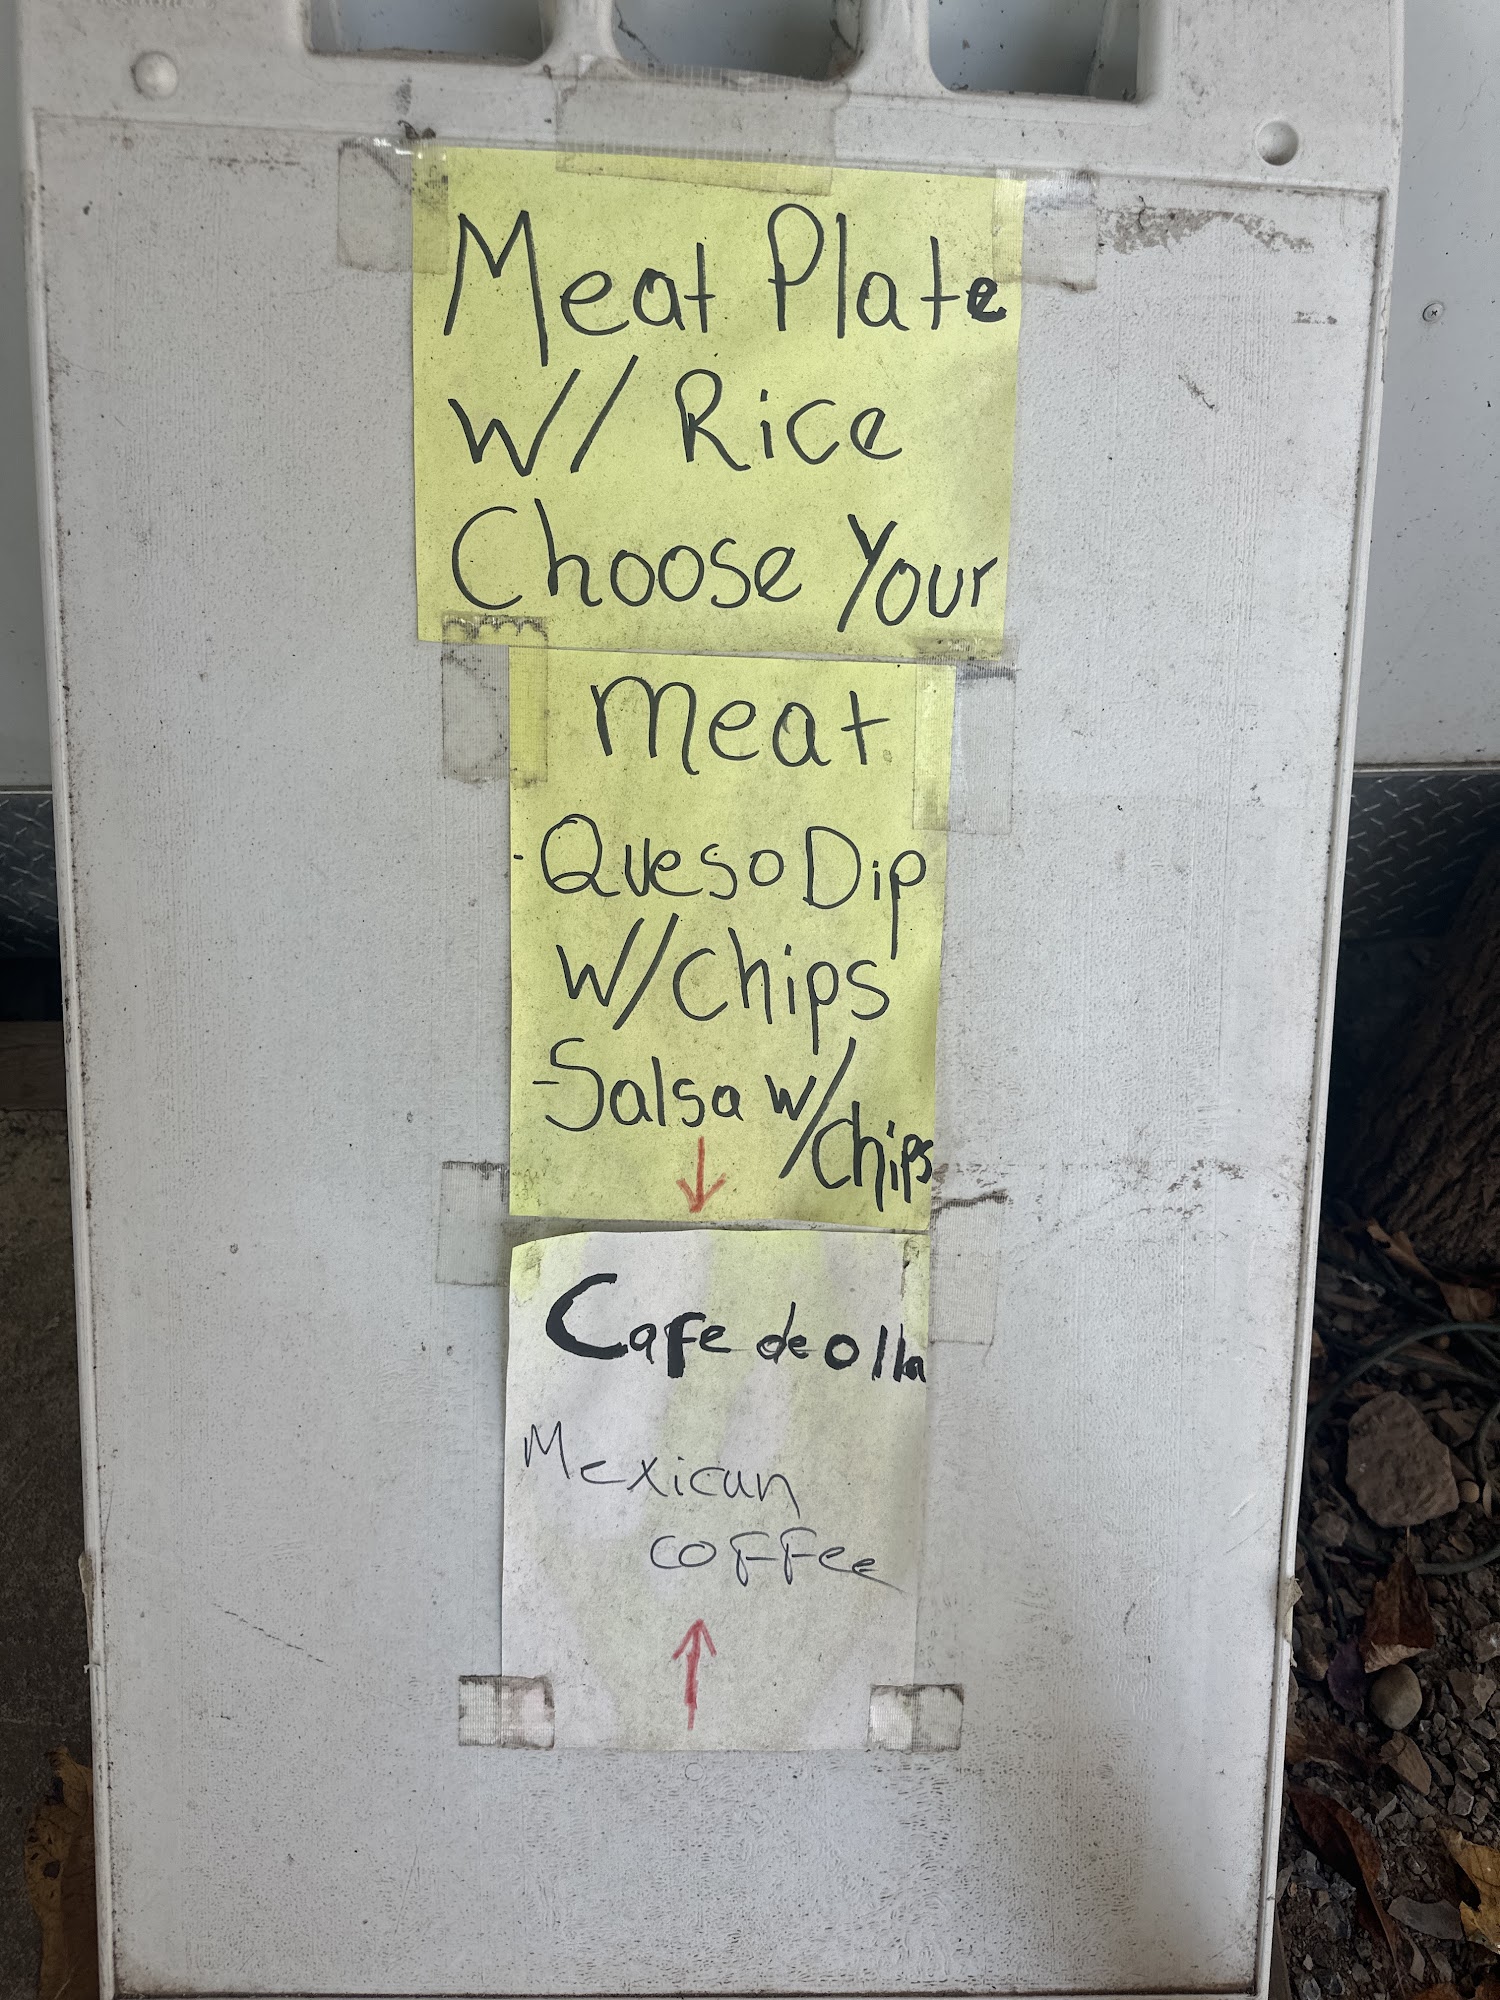 Meat Plate
w/ Rice
Choose Your
meat
-Queso Dip
w/chips
-Salsa w/
chips
Cafe de olla
Mexican
coffee